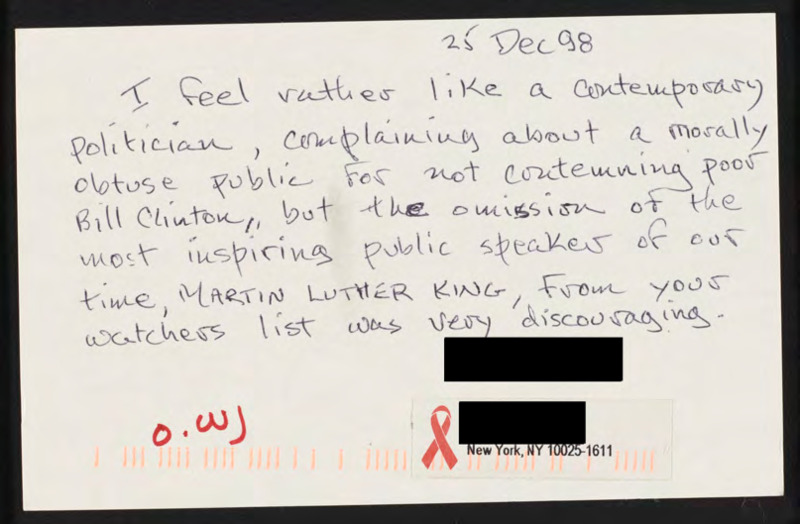 25 Dec 98
I feel rather like a contemporary
politician, complaining about a morally
obtuse public for not contemning poor
Bill Clinton, but the omission of the
most inspiring public speaker of our
time, MARTIN LUTHER KING, from your
watchers list was very discouraging.
O.WJ
New York, NY 10025-1611